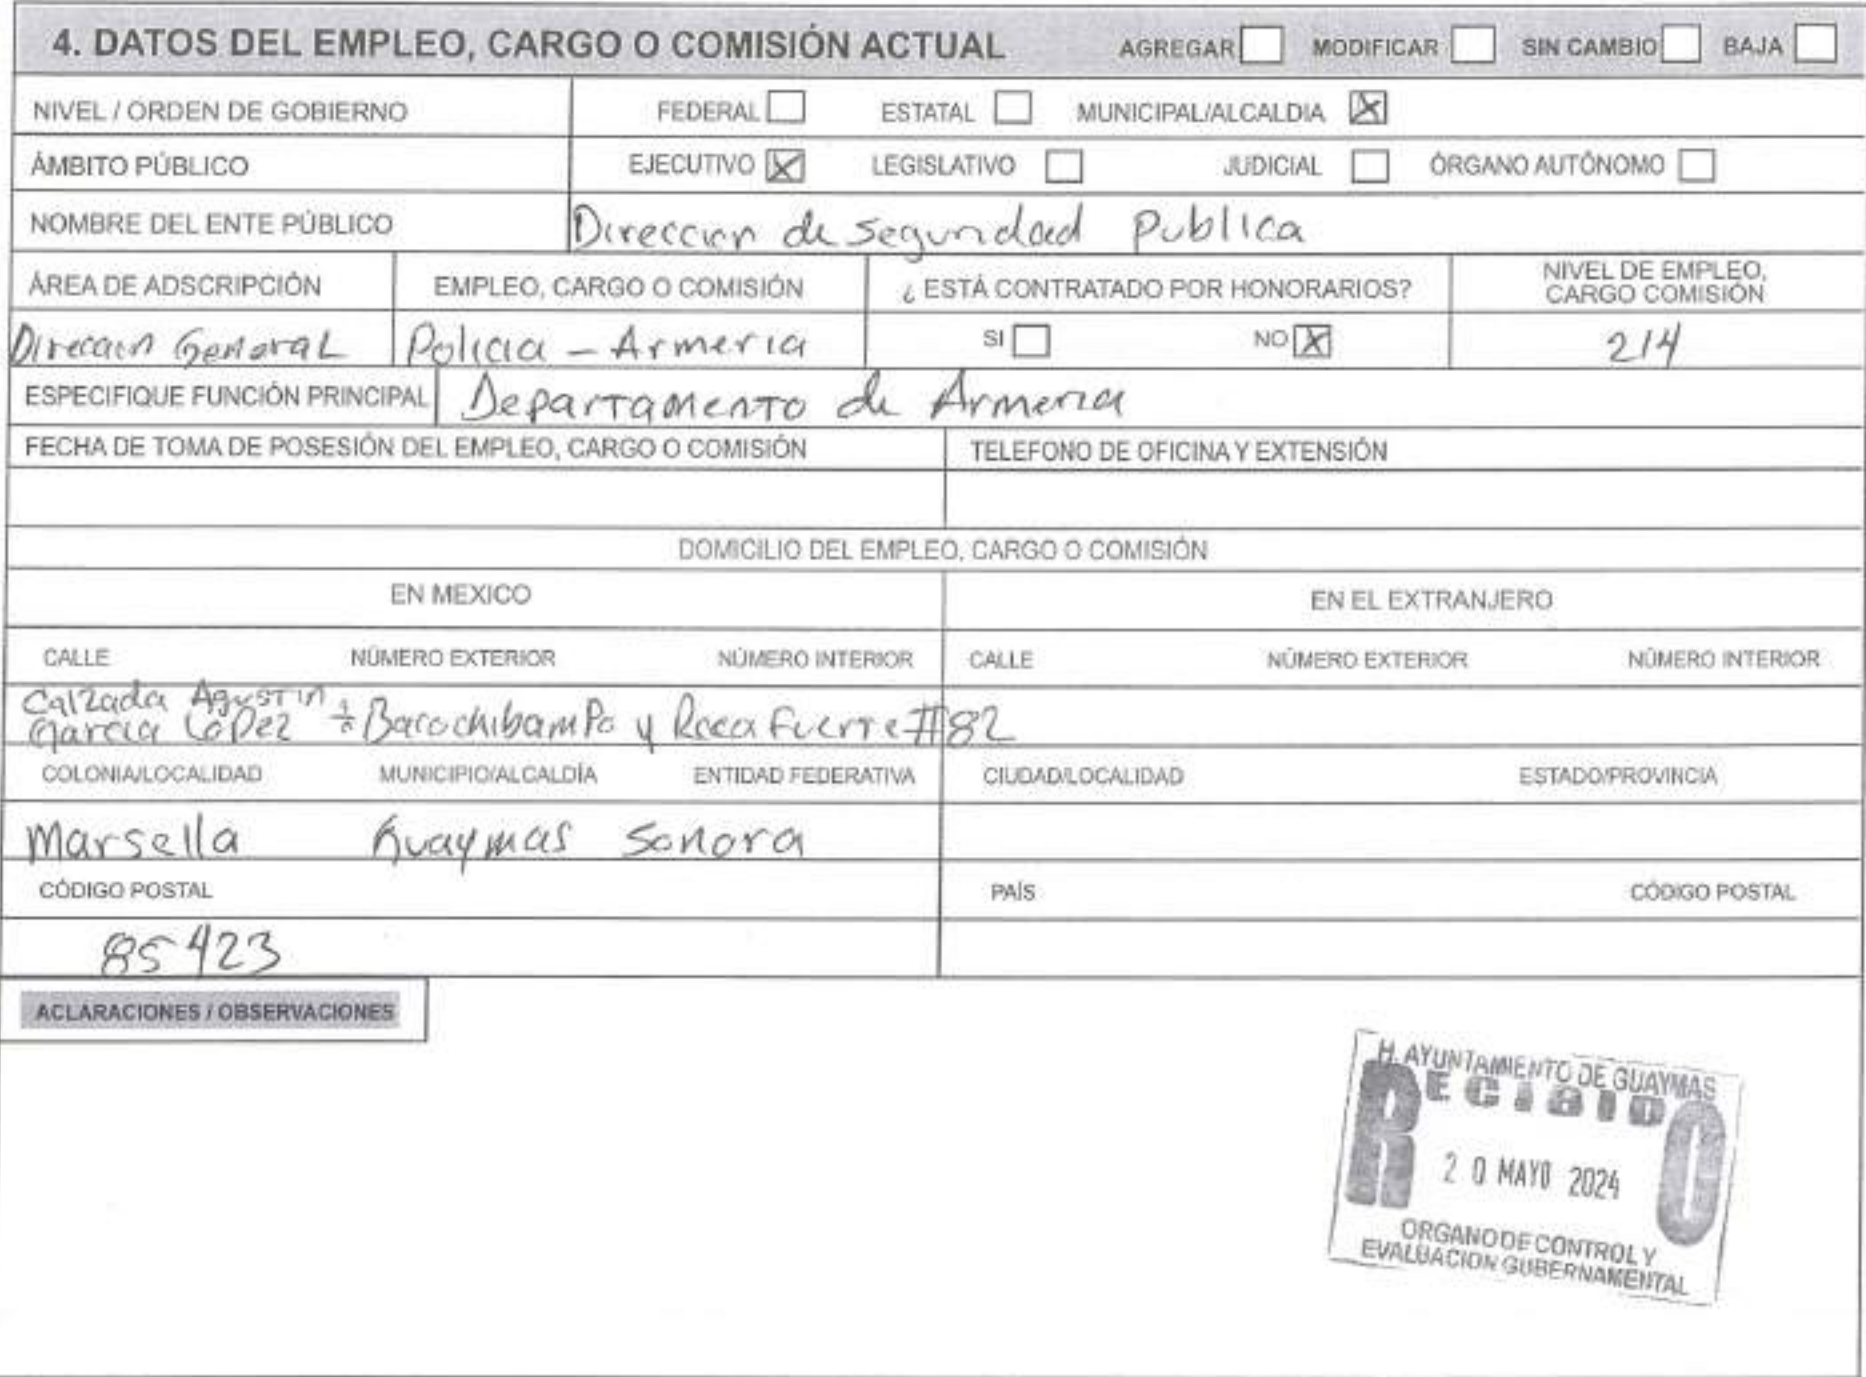 4. DATOS DEL EMPLEO, CARGO O COMISIÓN ACTUAL AGREGAR MODIFICAR SIN CAMBIO BAJA
NIVEL / ORDEN DE GOBIERNO FEDERAL ESTATAL MUNICIPAL/ALCALDIA X
ÁMBITO PÚBLICO EJECUTIVO X LEGISLATIVO JUDICIAL ÓRGANO AUTÓNOMO
NOMBRE DEL ENTE PÚBLICO Direccion de seguridad Publica
ÁREA DE ADSCRIPCIÓN EMPLEO, CARGO O COMISIÓN ¿ ESTÁ CONTRATADO POR HONORARIOS? NIVEL DE EMPLEO,
CARGO COMISIÓN
Direccion General Policia - Armeria SI NO X 214
ESPECIFIQUE FUNCIÓN PRINCIPAL Departamento de Armeria
FECHA DE TOMA DE POSESIÓN DEL EMPLEO, CARGO O COMISIÓN TELEFONO DE OFICINA Y EXTENSIÓN
DOMICILIO DEL EMPLEO, CARGO O COMISIÓN
EN MEXICO EN EL EXTRANJERO
CALLE NÚMERO EXTERIOR NÚMERO INTERIOR CALLE NÚMERO EXTERIOR NÚMERO INTERIOR
Calzada Agustin
Garcia López Bacochibampo y Roca Fuerte #82
COLONIA/LOCALIDAD MUNICIPIO/ALCALDÍA ENTIDAD FEDERATIVA CIUDAD/LOCALIDAD ESTADO/PROVINCIA
Marsella Guaymas Sonora
CÓDIGO POSTAL PAÍS CÓDIGO POSTAL
85423
ACLARACIONES / OBSERVACIONES
H. AYUNTAMIENTO DE GUAYMAS
RECIBIDO
20 MAYO 2024
ORGANO DE CONTROL Y
EVALUACION GUBERNAMENTAL